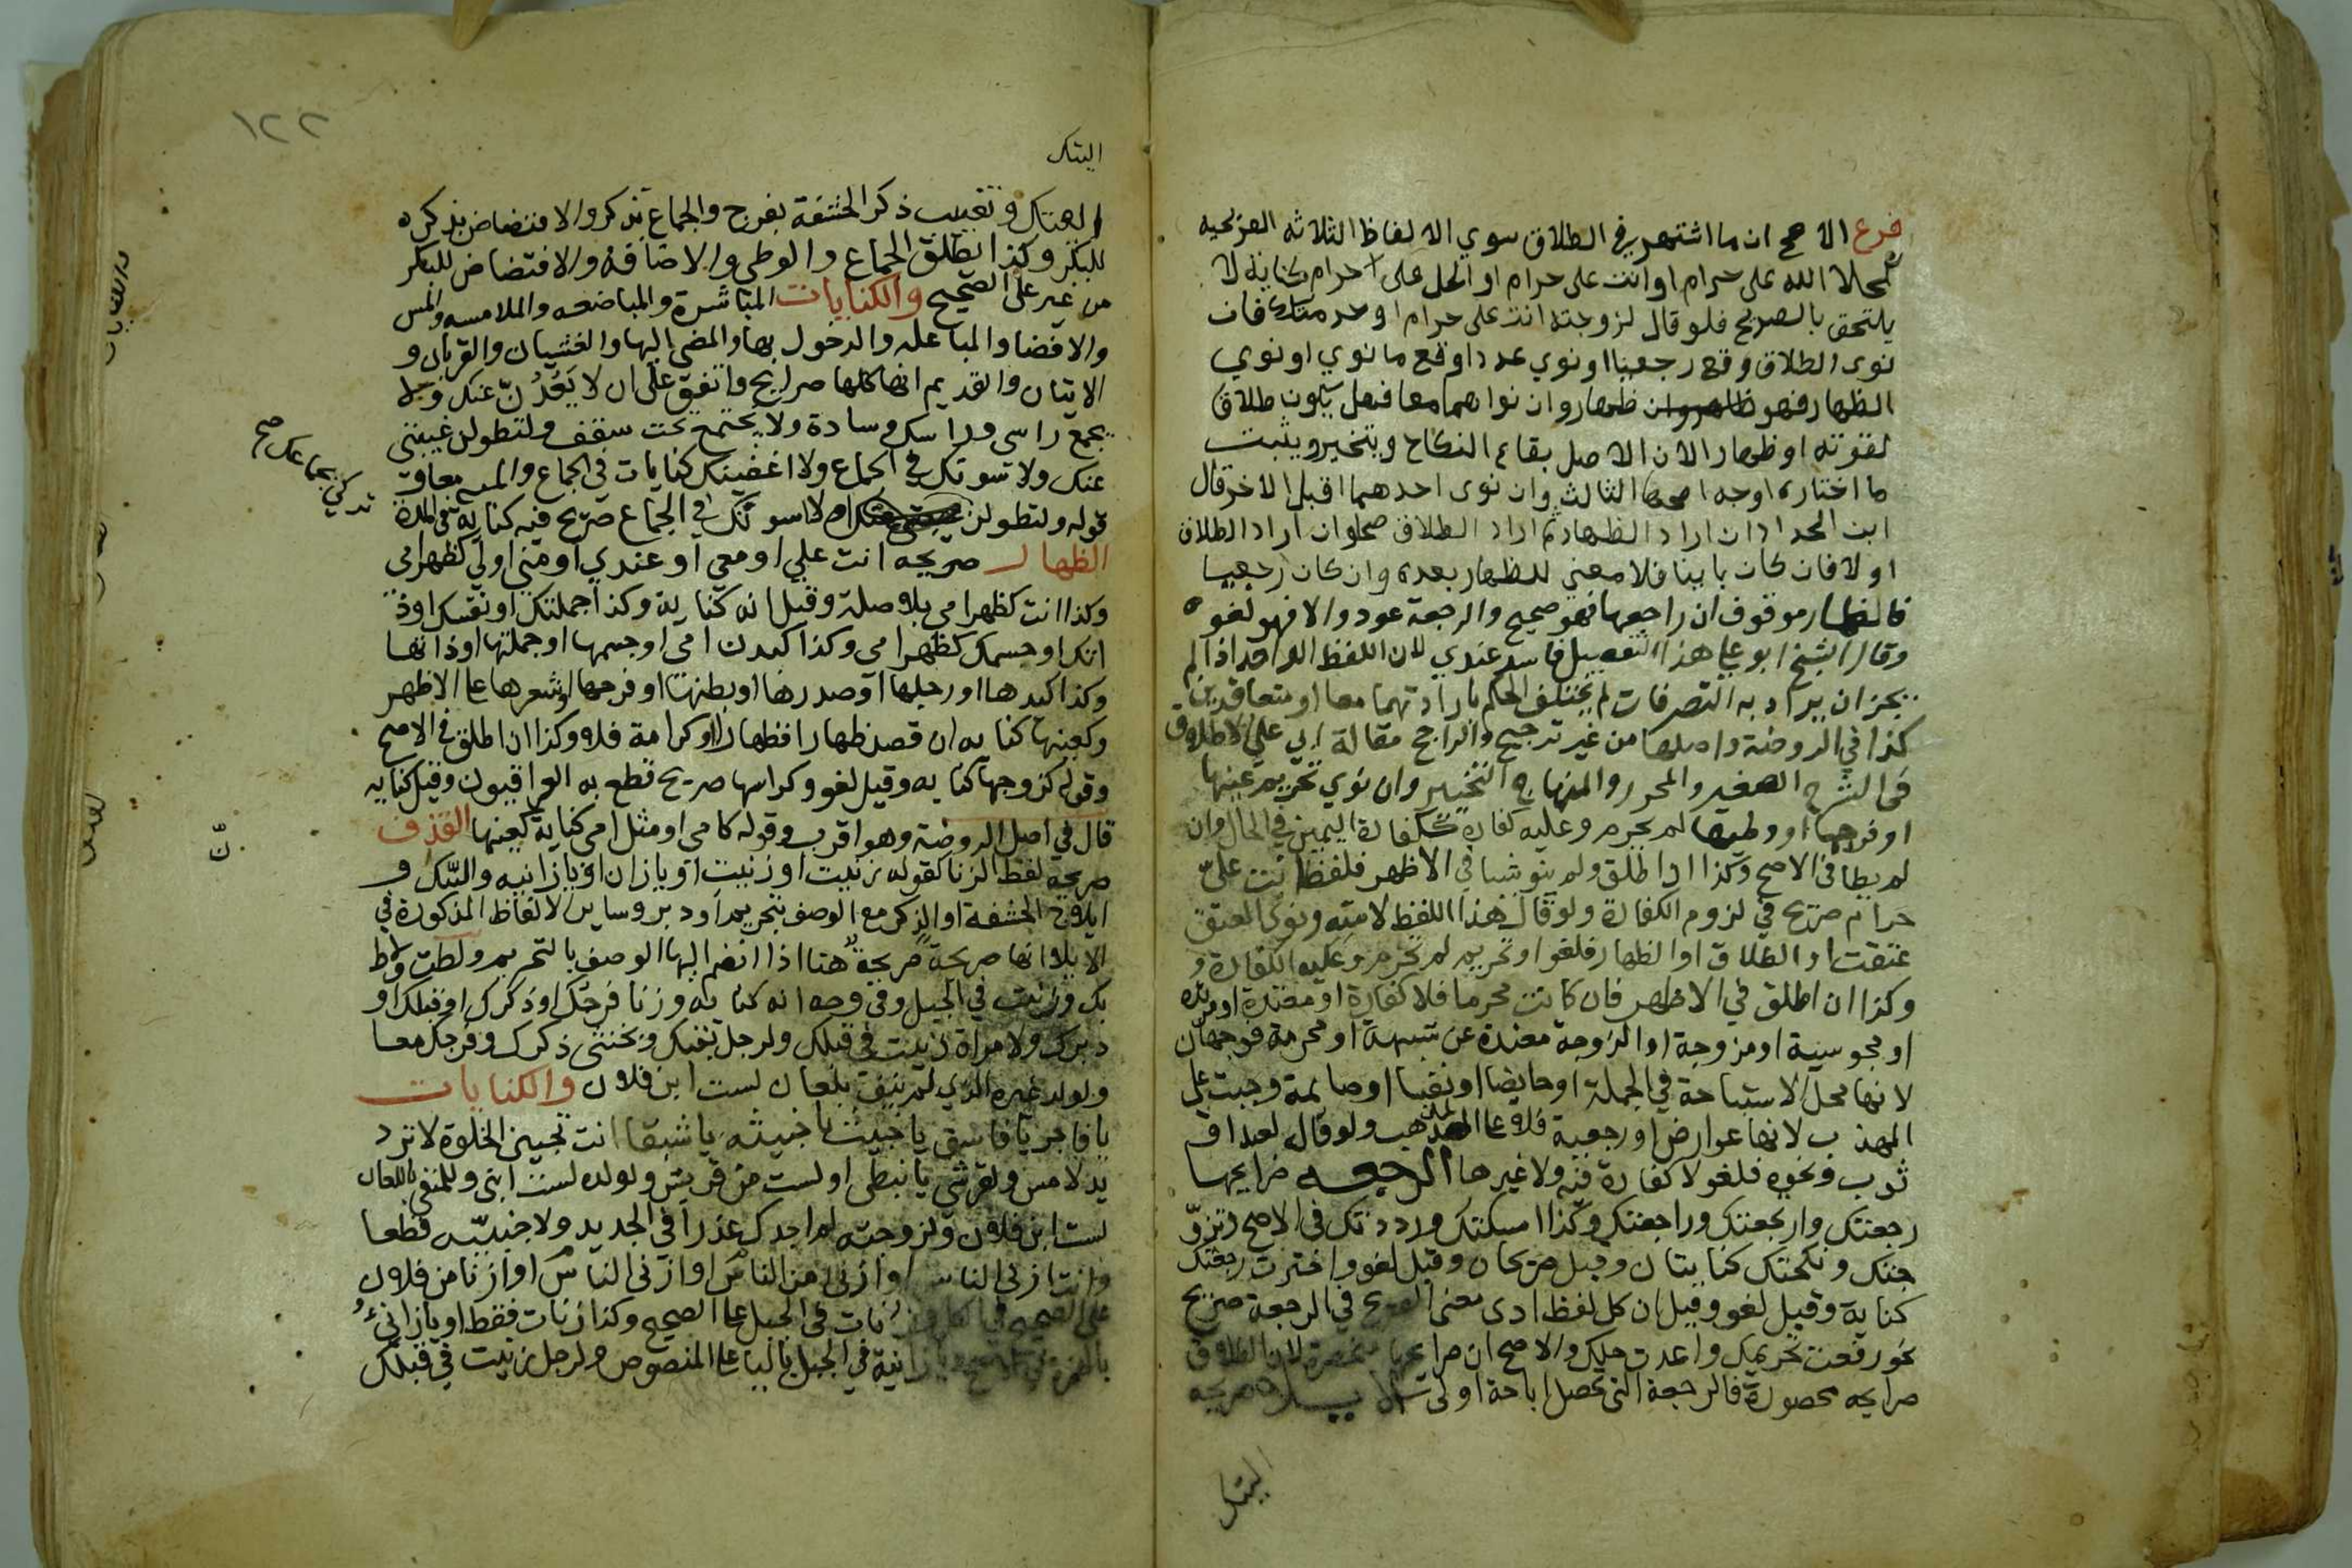 فرع الاصح ان ما اشتهر في الطلاق سوي الالفاظ الثلاثه الصريحيه
كحلال الله على حرام او انت على حرام او الحل على حرام كنايه لا
يلتحق بالصريح فلو قال لزوجته انت على حرام او حرمتك فان
نوى الطلاق وقع رجعيا او نوي عددا وقع ما نوي او نوي
الظهار فهو ظهار وان نواهما معا فهل يكون طلاقا
لقوته او ظهارا لان الاصل بقاء النكاح ويتخير ويثبت
ما اختاره اوجه اصحها الثالث وان نوى احدهما قبل الاخر قال
ابن الحداد ان اراد الظهار ثم اراد الطلاق صحا وان اراد الطلاق
اولا فان كان باينا فلا معنى للظهار بعده وان كان رجعيا
فالظهار موقوف ان راجعها فهو صحيح والرجعة عود والا فهو لغو
وقال الشيخ ابو علي هذا التفصيل فاسد عندي لان اللفظ الواحد اذا لم
يجز ان يراد به التصرفات لم يختلف الحكم بارادتهما معا او متعاقبين
كذا في الروضة واصلها من غير ترجيح والراجح مقالة ابي علي لاطلاق
في الشرح الصغير والمحرر والمنهاج التخيير وان نوي تحريم عينها
او فرجها او وطئها لم يحرم وعليه كفارة ككفارة اليمين في الحال وان
لم يطا في الاصح وكذا اذا اطلق ولم ينو شيا في الاظهر فلفظ انت علي
حرام صريح في لزوم الكفارة ولو قال هذا اللفظ لامته ونوى العتق
عتقت او الطلاق او الظهار فلغو او تحريم لم تحرم وعليه الكفارة و
وكذا ان اطلق في الاظهر فان كانت محرما فلا كفارة او معتدة او مرتدة
او مجوسية او مزوجة او الزوجة معتدة عن شبهة او محرمة فوجهان
لانها محل الاستباحة في الجملة او حايضا او نفسا او صايمة وجبت على
المهذب لانها عوارض او رجعية فلا على المذهب ولو قال لعبد او
ثوب ونحوه فلغو لا كفارة فيه ولا غيرها الرجعه صرايحها
رجعتك وارتجعتك وراجعتك وكذا امسكتك ورددتك في الاصح وتزو
جتك ونكحتك كنايتان وقيل صريحان وقيل لغو واخترت رجعتك
كناية وقيل لغو وقيل ان كل لفظ ادى معنى الصريح في الرجعة صريح
نحو رفعت تحريمك واعدت حلك والاصح ان صرايحها منحصرة لان الطلاق
صرايحه محصورة فالرجعة التي تحصل اباحة اولى الايلا صريحه
النيك
١٢٢
النيك
وتغييب ذكر الحشفة بفرج والجماع بذكر والافتضاض بذكره
للبكر وكذا يطلق الجماع والوطي والاصابة والافتضاض للبكر
من غير على الصحيح والكنايات المباشرة والمباضعه والملامسه والمس
والافضا والمباعله والدخول بها والمضي اليها والغشيان والقربان و
الاتيان والقديم انها كلها صرايح واتفق على ان لا يَعُدُنّ عنك و
يجمع راسي وراسك وسادة ولا يجتمع تحت سقف ولتطولن غيبتي
عنك ولا سوتك في الجماع ولا اغضبنك كنايات في الجماع والمده معا و
قوله ولتطولن او لا سوتك في الجماع صريح فيه كنايه في المدة
تركي بجماعك صح
الظهار صريحه انت علي او معي او عندي او مني او لي كظهر امي
وكذا انت كظهر امي بلا صلة وقيل انه كناية وكذا جملتك او نفسك او ذ
اتك او جسمك كظهر امي وكذا كبدن امي او جسمها او جملتها او ذاتها
وكذا كيدها او رجلها او صدرها او بطنها او فرجها او شعرها على الاظهر
وكعينها كنايه ان قصد ظهارا فظهار او كرامة فلا وكذا ان اطلق في الاصح
وقوله كزوجها كنايه وقيل لغو وكراسها صريح قطع به العراقيون وقيل كنايه
قال في اصل الروضة وهو اقرب وقوله كامي او مثل امي كناية كعينها القذف
صريحه لفظ الزنا كقوله زنيت او زنيتِ او يا زان او يا زانيه والنيك و
ايلاج الحشفة او الذكر مع الوصف بتحريم او دبر وساير الالفاظ المذكورة في
الايلا انها صريحة صريحة هنا اذا انضم اليها الوصف بالتحريم ولطت ولاط
بك وزنيت في الجبل وفي وجه انه كنايه وزنا فرجك او ذكرك او قبلك او
دبرك ولامراة زنيت في قبلك ولرجل بقبلك ولخنثى ذكرك وفرجك معا
ولولد غيره الذي لم ينف بلعان لست ابن فلان والكنايات
يا فاجر يا فاسق يا خبيث يا خبيثه يا شبقا انت تحبين الخلوة لا ترد
يد لامس ولقرشي يا نبطي او لست من قريش ولولده لست ابني وللمنفي باللعان
لست ابن فلان ولزوجته لم اجدك عذرا في الجديد ولاجنبيه قطعا
وانت ازنى الناس او ازنى من الناس او ازنى الناس او ازنا من فلان
على الصحيح في وزنات في الجبل على الصحيح وكذا زنات فقط او يا زانئ
بالهمزة في الاصح ويا زانية في الجبل باليا على المنصوص ولرجل زنيت في قبلك